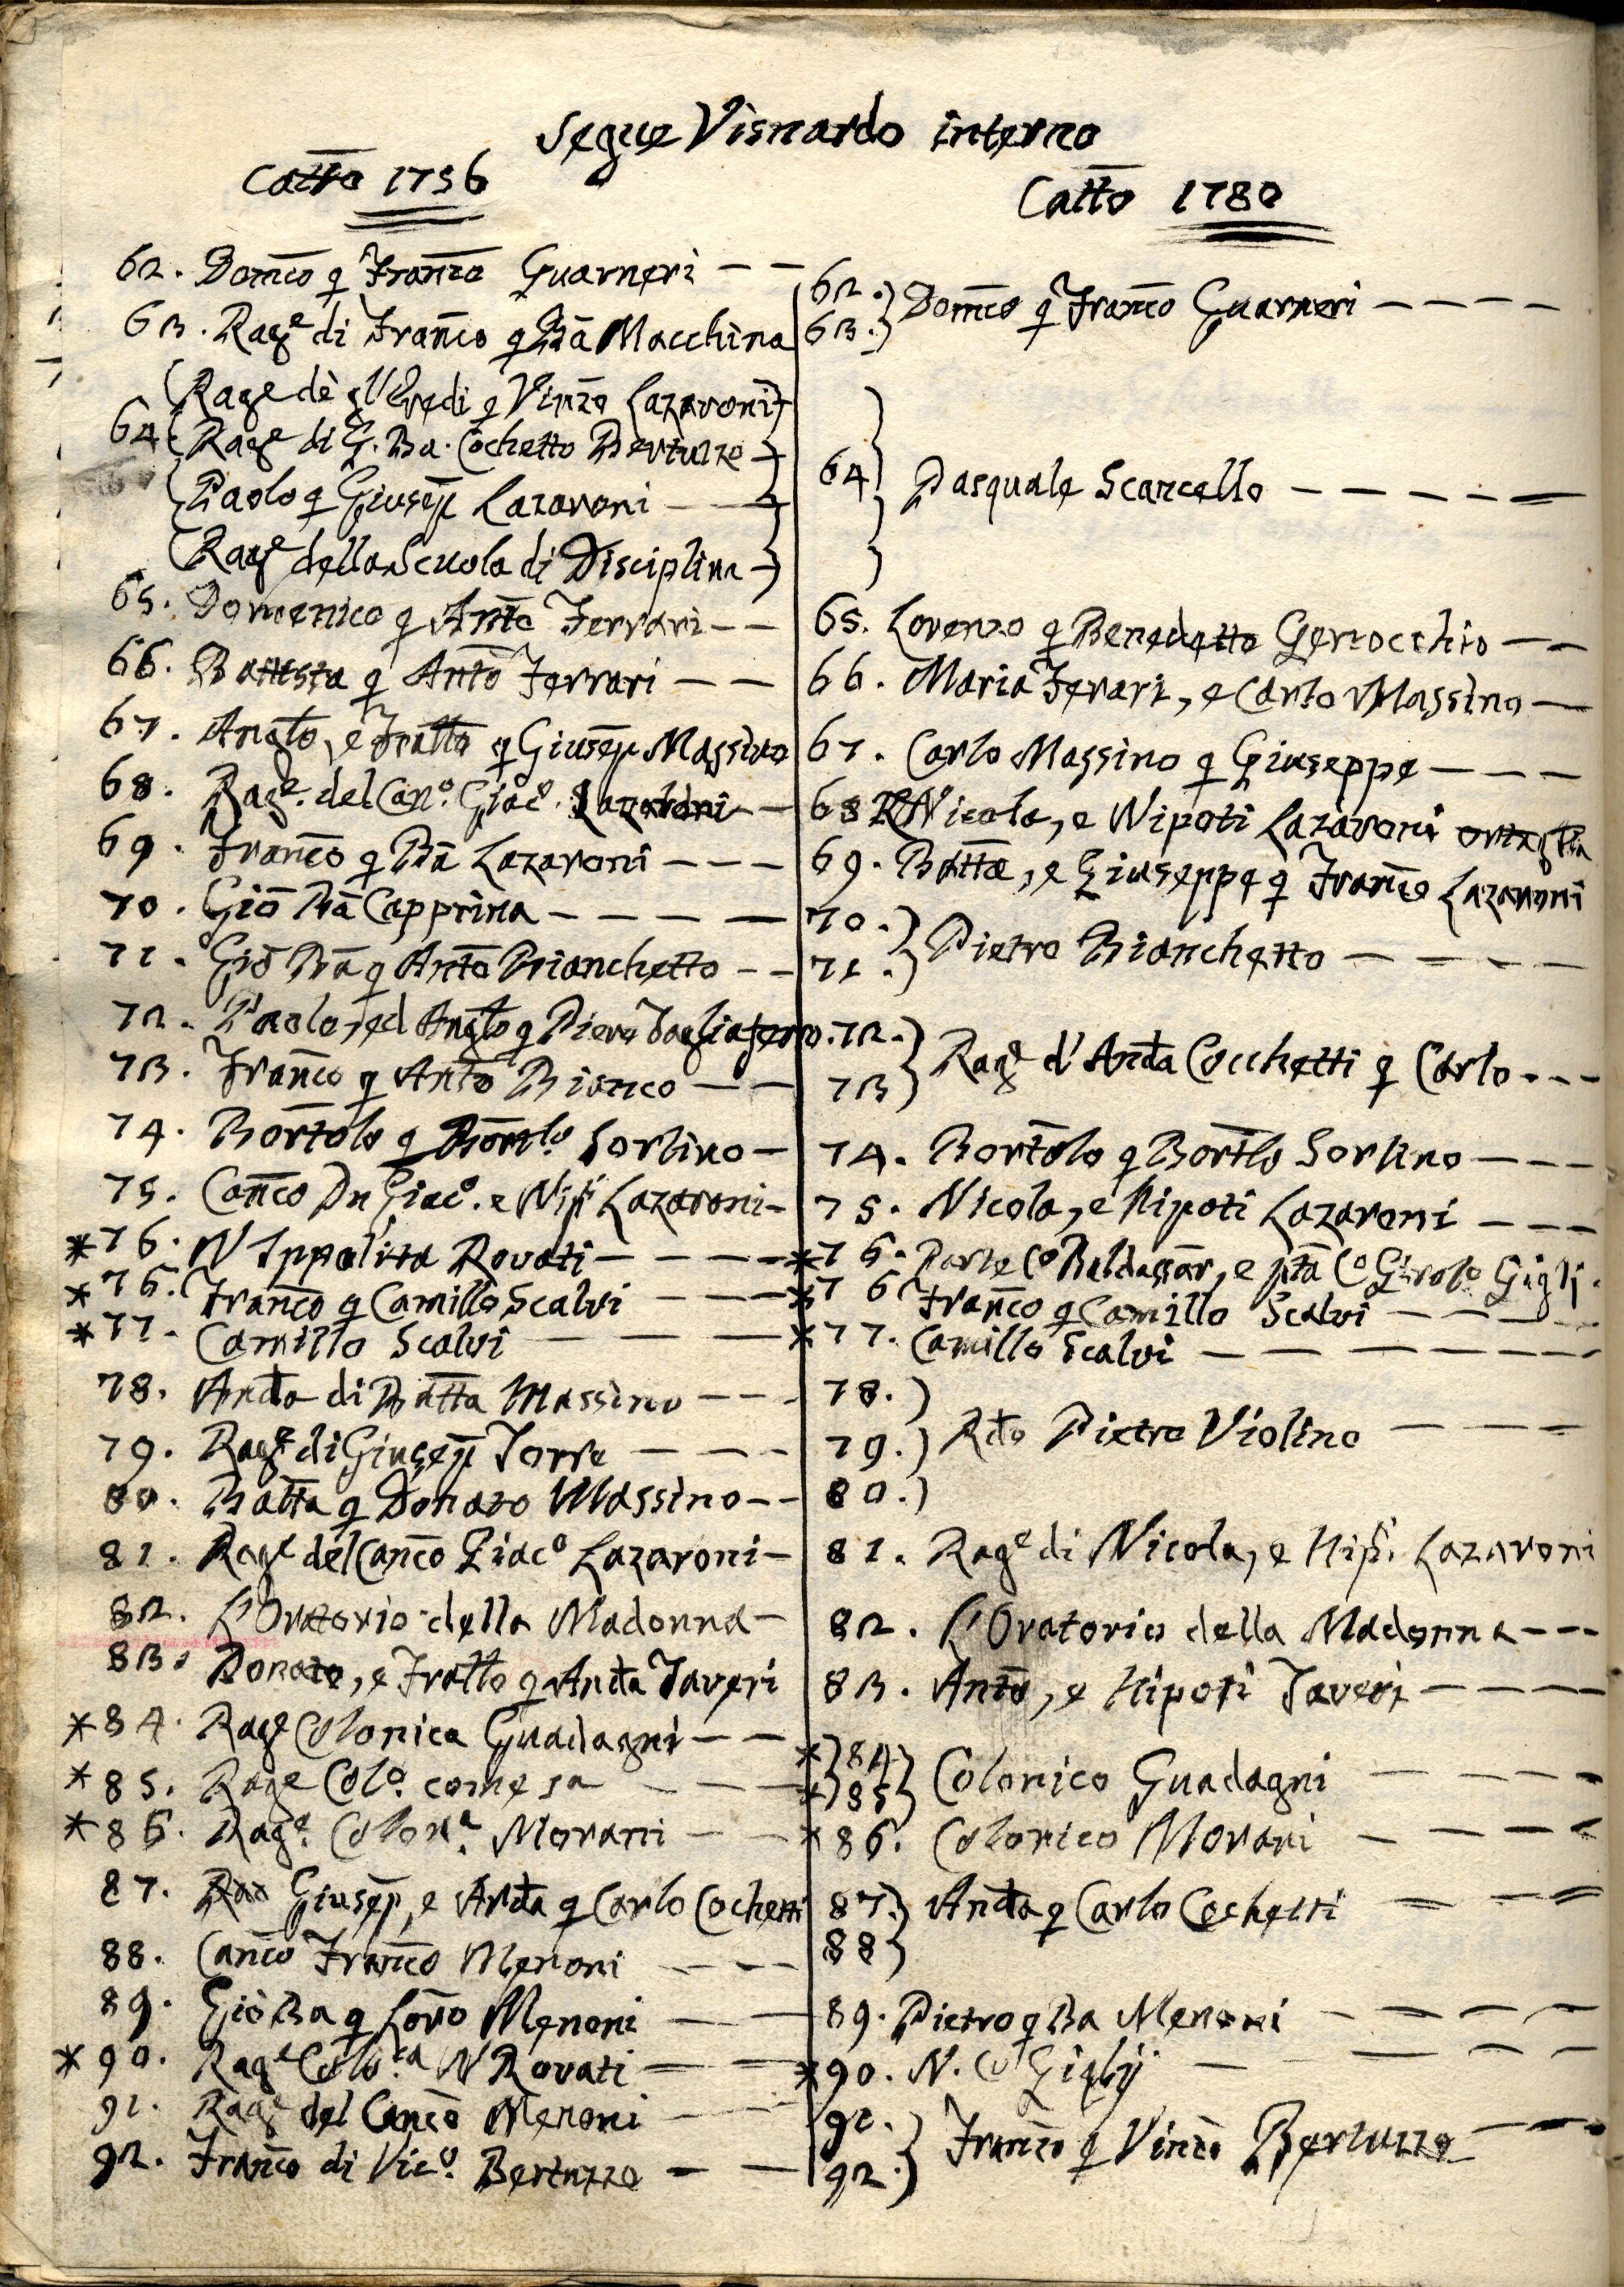 Segue Visnardo interno
Catto 1756
62. Domco q Franco Guarneri
63. Rage di Franco q Ba Macchina
Rage de gl'Eredi q Vinzo Lazaroni
64 Rage di G. Ba. Cochetto Bertuzzo
Paolo q Giusep Lazaroni
Rage della Scuola di Disciplina
65. Domenico q Anto Ferrari
66. Battista q Anto Ferrari
67. Anglo, e Fratto q Giusep Massino
68. Rage. del Cano. Giaco. Lazaroni
69. Franco q Ba Lazaroni
70. Gio Ba Capprina
71. Gio Ba q Anto Bianchetto
72. Paolo, ed Anglo q Piero Tagliaferro.
73. Franco q Anto Bianco
74. Bortolo q Bortolo Sorlino
75. Canco Dn Giaco. e Nipi Lazaroni
*76. N Ippolita Rovati
*76. Franco q Camillo Scalvi
*77. Camillo Scalvi
78. Anda di Batta Massino
79. Rage di Giusep Torre
80. Batta q Donato Massino
81. Rage del Canco Giaco Lazaroni
82. L'Oratorio della Madonna
83. Donato, e Fratto q Anda Taveri
*84. Rage Colonica Guadagni
*85. Rage Colo. come sa
*86. Rage. Colona. Morani
87. Giusep, e Anda q Carlo Cochetti
88. Canco Franco Menoni
89. Gio Ba q Loro Menoni
*90. Rage Colo.ca N Rovati
91. Rage del Canco Menoni
92. Franco di Vico. Bertuzzo
Catto 1780
62.
63. Domco q Franco Guarneri
64 Pasquale Scarcello
65. Lorenzo q Benedetto Gerrocchio
66. Maria Ferari, e Carlo Massino
67. Carlo Massino q Giuseppe
68 Nicola, e Nipoti Lazaroni
69. Batta, e Giuseppe q Franco Lazaroni
70.
71. Pietro Bianchetto
72.
73 Rage d'Anda Cocchetti q Carlo
74. Bortolo q Bortlo Sorlino
75. Nicola, e Nipoti Lazaroni
*76. Parte Co Baldassar, e pta Co Girolo Gigli
*76 Franco q Camillo Scalvi
*77. Camillo Scalvi
78.
79. Rdo Pietro Violino
80.
81. Rage di Nicola, e Nipi. Lazaroni
82. L'Oratorio della Madonna
83. Anto, e Nipoti Taveri
*84
*85 Colonico Guadagni
*86. Colonico Morani
87.
88 Anda q Carlo Cochetti
89. Pietro q Ba Menoni
*90. N. Co Giglij
91.
92. Franco q Vinco Bertuzzo